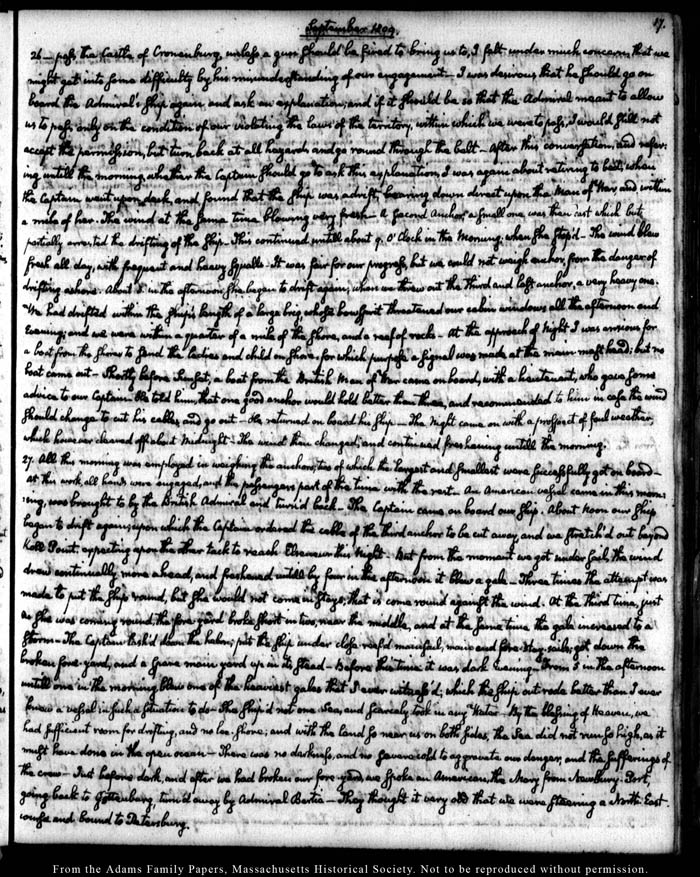 September 1809.
17.
26 — pass the Castle of Cronenburg, unless a gun should be fired to bring us to, I felt under much concern that we
might get into some difficulty by his misunderstanding of our engagement — I was desirous that he should go on
board the Admiral's ship again and ask an explanation; and if it should be so that the Admiral meant to allow
us to pass only on the condition of our violating the laws of the territory, within which we were to pass, I would still not
accept the permission, but turn back at all hazards and go round through the belt — After this conversation, and refer-
ing untill the morning, whether the Captain should go to ask this explanation, I was again about retiring to bed; when
the Captain went upon deck, and found that the ship was adrift, bearing down direct upon the Man of War, and within
a mile of her. The wind at the same time blowing very fresh — A second Anchor a small one was then cast which but
partially arrested the drifting of the ship. This continued untill about 9. O'Clock in the Morning, when she stop'd — The wind blew
fresh all day, with frequent and heavy squalls — It was fair for our progress, but we could not weigh anchor, from the danger of
drifting ashore. About in the afternoon she began to drift again; when we threw out the third and last anchor, a very heavy one.
We had drifted within the ship's length of a large brig, whose bowsprit threatened our cabin windows all the afternoon and
Evening; and we were within a quarter of a mile of the shore, and a reef of rocks — At the approach of Night I was anxious for
a boat from the shore to send the ladies and child on shore, for which purpose a signal was made at the main mast head; but no
boat came out — Shortly before Sunset, a boat from the British Man of War came on board, with a lieutenant, who gave some
advice to our Captain. He told him, that one good anchor would hold better than three, and recommended to him in case the wind
should change to cut his cables, and go out — He returned on board his ship — The Night came on with a prospect of foul weather,
which however cleared off about Midnight — The wind then changed, and continued freshening untill the morning.
27. All this morning was employed in weighing the anchors; two of which the largest and smallest were successfully got on board —
At this work, all hands were engaged, and the passengers part of the time with the rest — An American vessel came in this morn-
:ing, was brought to by the British Admiral and turn'd back — The Captain came on board our ship. About Noon our Ship
began to drift again; upon which the Captain ordered the cable of the third anchor to be cut away, and we stretch'd out beyond
Koll Point, expecting upon the other tack to reach Elseneur this Night — But from the moment we got under sail, the wind
drew continually more ahead, and freshened untill by four in the afternoon it blew a gale — Three times the attempt was
made to put the ship round, but she would not come in stays, that is come round against the wind. At the third time, just
as she was coming round, the fore yard broke short in two, near the middle, and at the same time the gale increased to a
storm — The Captain lash'd down the helm; put the ship under close reef'd mainsail, main and fore-stay-sails; got down the
broken fore-yard, and a spare main yard up in its stead — Before this time it was dark evening — From 5 in the afternoon
untill one in the morning, blew one of the heaviest gales that I ever witness'd, which the ship out rode better than I ever
knew a vessel in such a situation to do — She ship'd not one Sea, and scarcely took in any Water — By the blessing of Heaven, we
had sufficient room for drifting, and no lee shore; and with the land so near us on both sides, the Sea did not run so high, as it
must have done in the open ocean — There was no darkness, and no severe cold to aggravate our danger, and the sufferings of
the crew — Just before dark, and after we had broken our fore-yard we spoke an American, the Mary from Newbury-Port,
going back to Gottenburg, turn'd away by Admiral Bertie — They thought it very odd that we were steering a North East
course and bound to Petersburg.
From the Adams Family Papers, Massachusetts Historical Society. Not to be reproduced without permission.